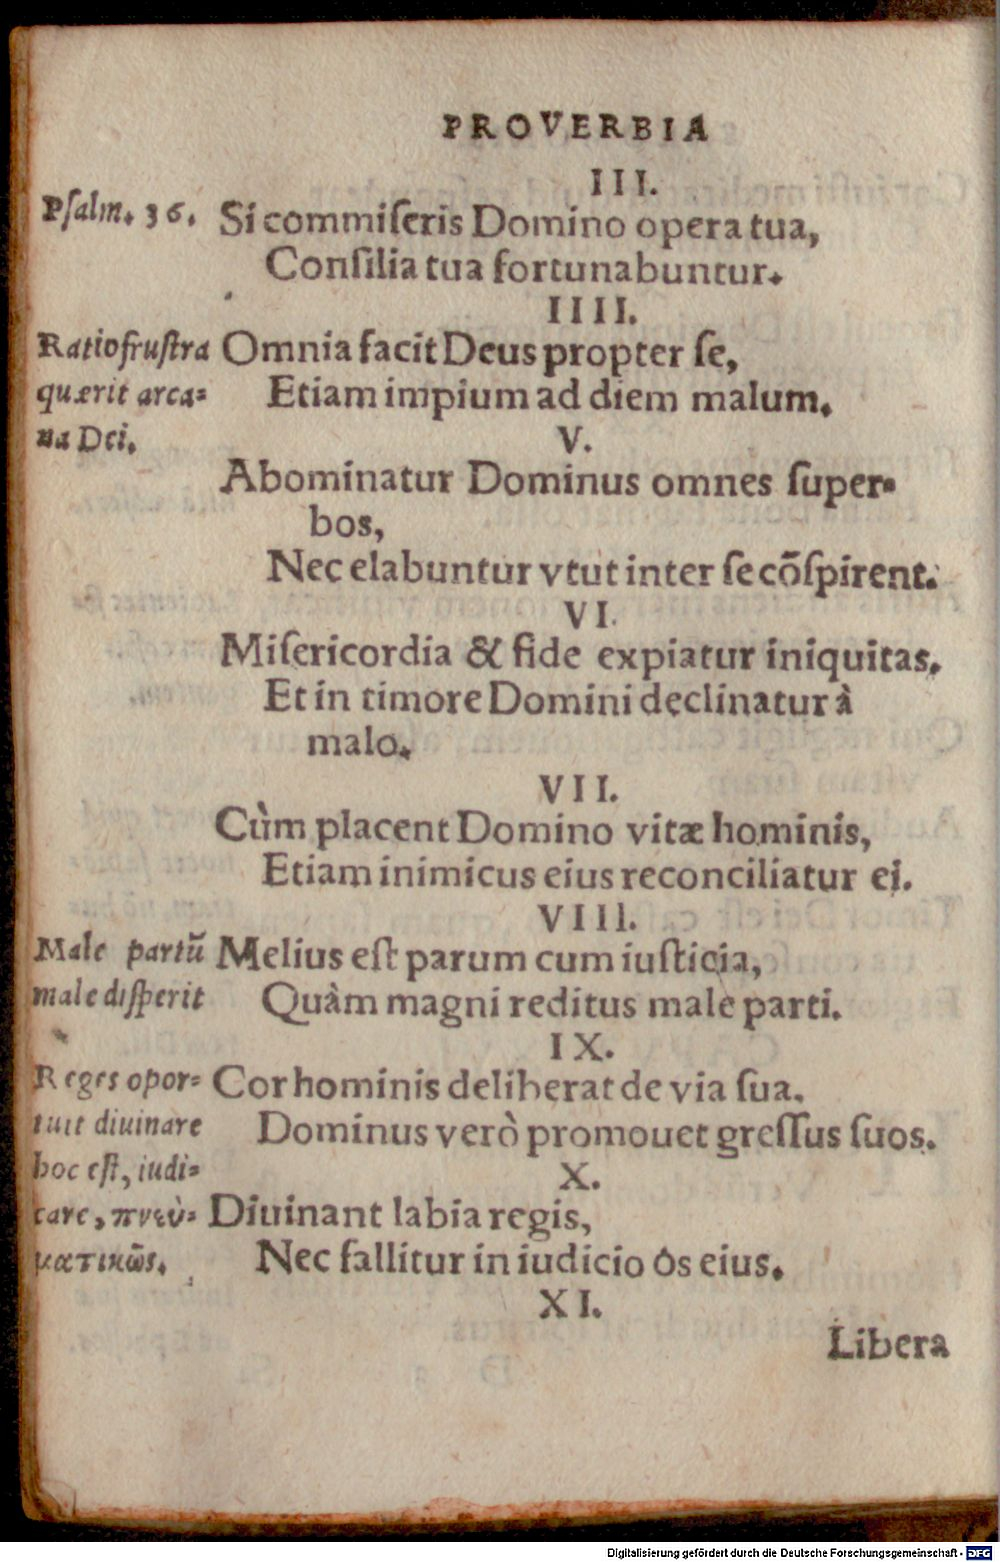 PROVERBIA
III.
Psalm. 36.
Si commiſeris Domino opera tua,
Conſilia tua fortunabuntur.
IIII.
Ratio fruſtra
quærit arca=
na Dei.
Omnia facit Deus propter ſe,
Etiam impium ad diem malum.
V.
Abominatur Dominus omnes ſuper=
bos,
Nec elabuntur vtut inter ſe cōſpirent.
VI.
Miſericordia & fide expiatur iniquitas.
Et in timore Domini declinatur à
malo.
VII.
Cùm placent Domino vitæ hominis,
Etiam inimicus eius reconciliatur ei.
VIII.
Male partū
male diſperit
Melius eſt parum cum iuſticia,
Quàm magni reditus male parti.
IX.
Reges opor=
tuit diuinare
hoc eſt, iudi=
care, πνευ=
ματικῶς.
Cor hominis deliberat de via ſua.
Dominus verò promouet greſſus ſuos.
X.
Diuinant labia regis,
Nec fallitur in iudicio ôs eius.
XI.
Libera
Digitalisierung gefördert durch die Deutsche Forschungsgemeinschaft - DFG